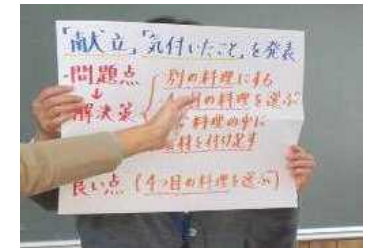 「献立」「気付いたこと」を発表
・問題点 別の料理にする
↓ つ目の料理を選ぶ
解決策 料理の中に
食材を付け足す
良い点 (4つ目の料理を選ぶ)